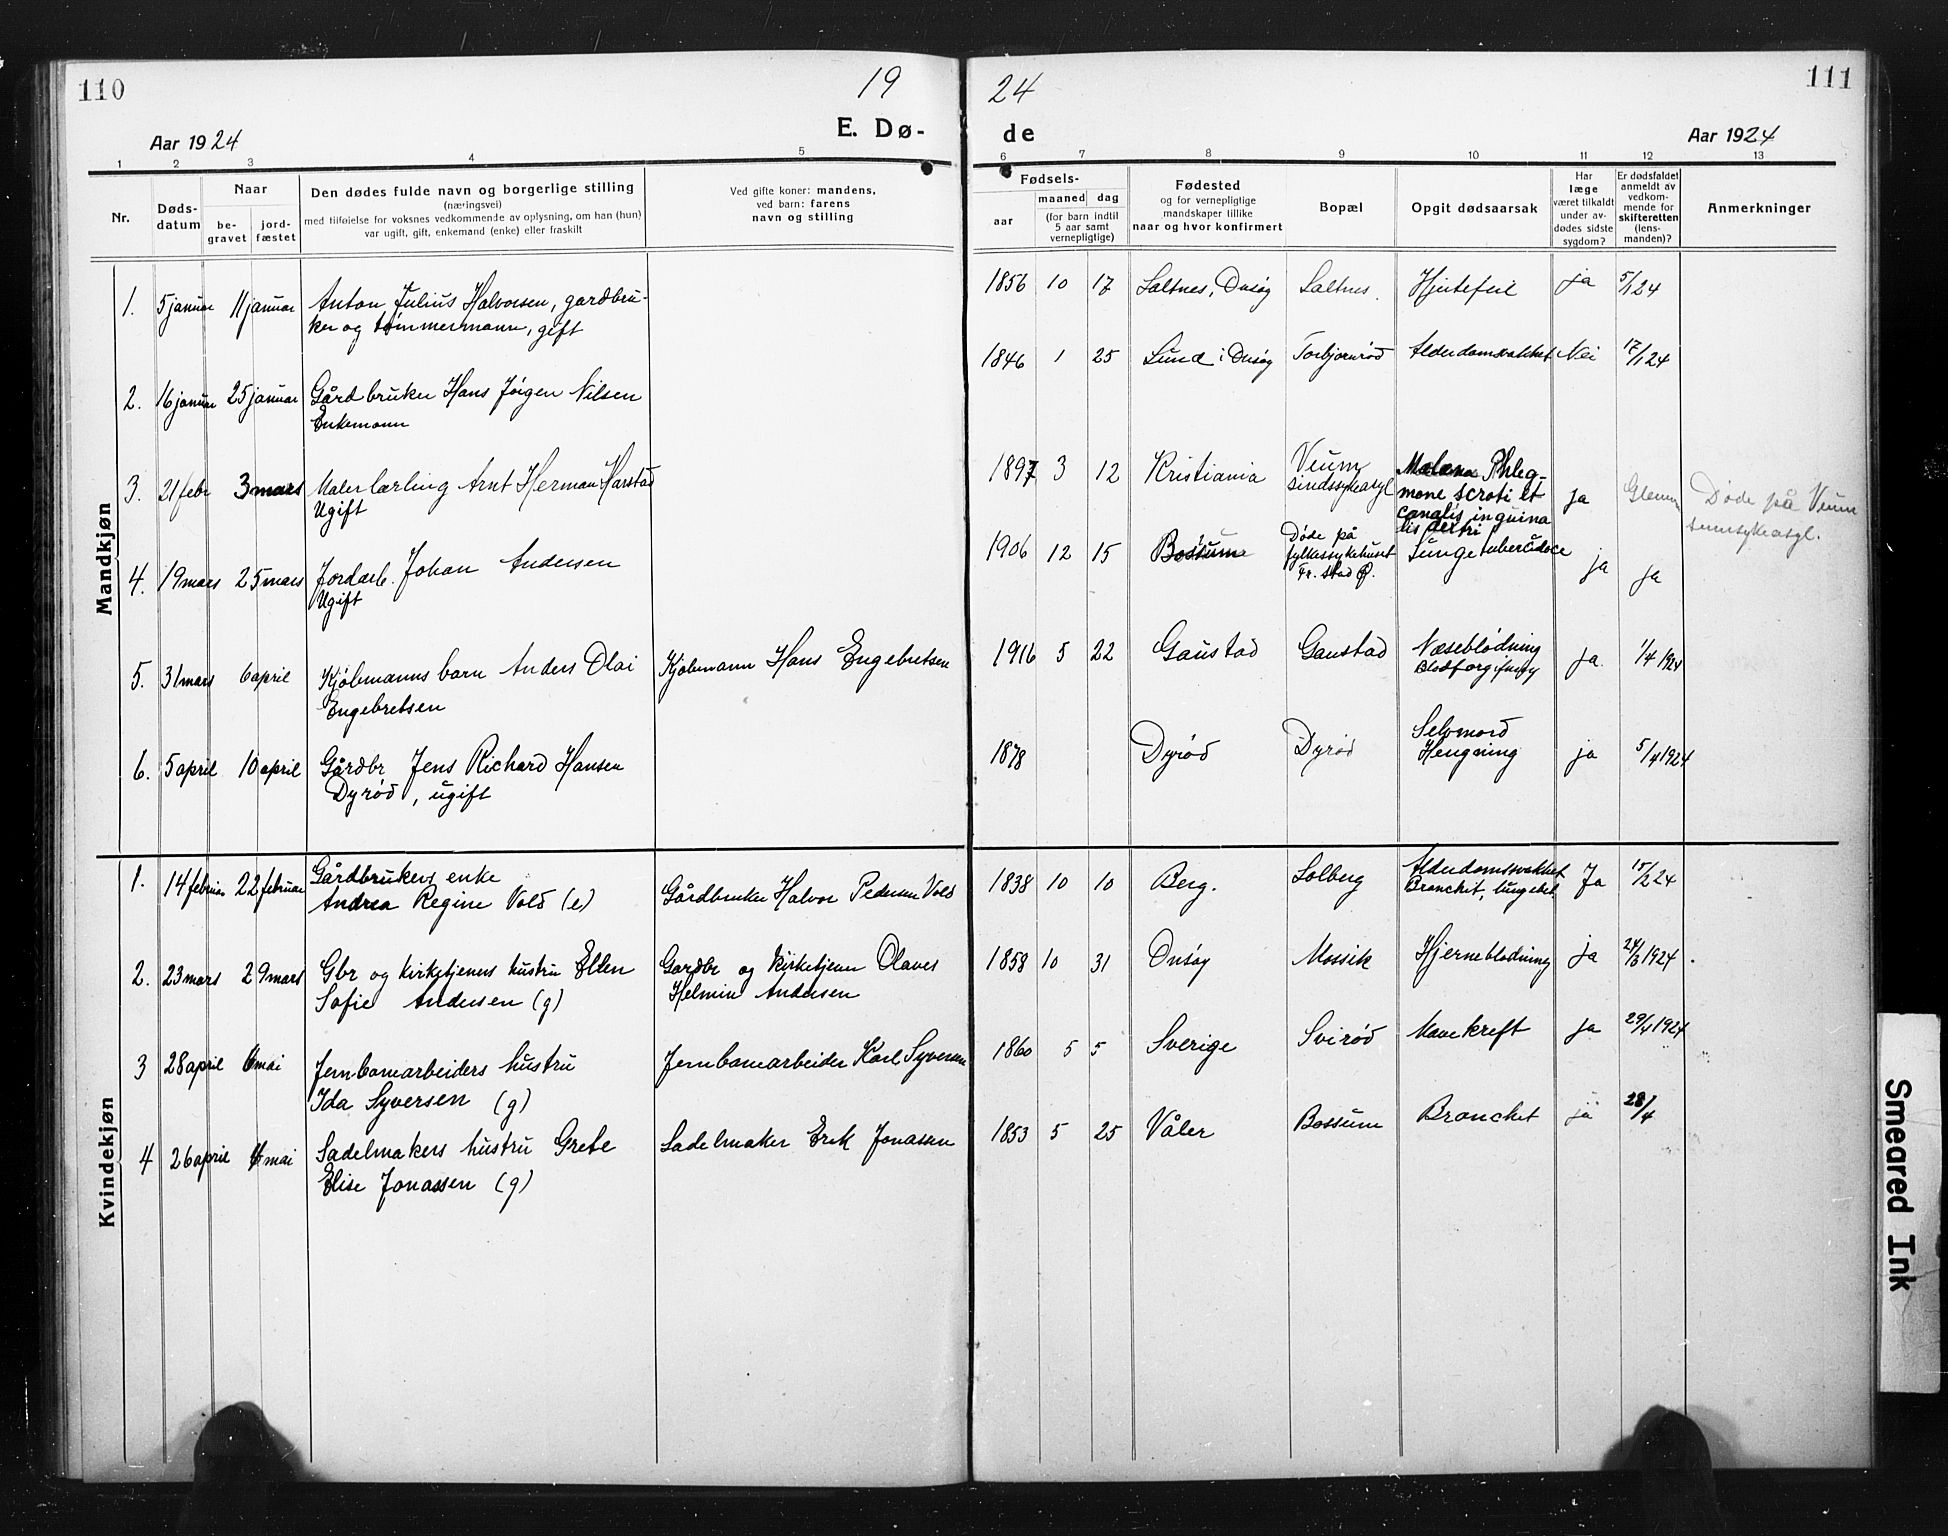 110
19
24
111
Aar 1924
E. Dø-
de
Aar 1924
1 2 3 4 5 6 7 8 9 10 11 12 13
Nr.
Døds-
datum
Naar
be-
gravet
jord-
fæstet
Den dødes fulde navn og borgerlige stilling
(næringsvei)
med tilføielse for voksnes vedkommende av oplysning, om han (hun)
var ugift, gift, enkemand (enke) eller fraskilt
Ved gifte koner: mandens,
ved barn: farens
navn og stilling
Fødsels-
aar
maaned dag
(for barn indtil
5 aar samt
vernepligtige)
Fødested
og for vernepligtige
mandskaper tillike
naar og hvor konfirmert
Bopæl
Opgit dødsaarsak
Har
læge
været tilkaldt
under av-
dødes sidste
sygdom?
Er dødsfaldet
anmeldt av
vedkom-
mende for
skifteretten
(lens-
manden)?
Anmerkninger
Mandkjøn
1. 5 januar 11 januar Anton Julius Halvorsen, gardbru-
ker og tømmermann, gift
1856 10 17 Saltnes, Onsøy Saltnes. Hjertefeil ja 5/1 24
2. 16 januar 25 januar Gårdbruker Hans Jörgen Nilsen
Enkemann
1846 1 25 Lund i Onsøy Torbjörnröd Alderdomsvakhet Nei 17/1 24
3. 21 febr 3 mars Malerlærling Arnt Herman Harstad
Ugift
1897 3 12 Kristiania Veum
sindssykeasyl
Phleg-
mone scroti et
canalis inguina
lis dextri
ja Glemm Döde på Veum
4. 19 mars 25 mars Jordarb. Johan Andersen
Ugift
1906 12 15 Bossum Döde på
fylkessykehuset
Fr. stad Ø.
Lungetuberculose ja ja
5. 31 mars 6 april Kjöbmanns barn Anders Olai
Engebretsen
Kjöbmann Hans Engebretsen
1916 5 22 Gaustad Gaustad Næseblödning
Blodforgiftning
ja 1/4 1924
6. 5 april 10 april Gårdbr Jens Richard Hansen
Dyröd, ugift
1878 Dyröd Dyröd Selvmord
Hengning
ja 5/4 1924
Kvindekjøn
1. 14 februar 22 februar Gårdbrukers enke
Andrea Regine Vold (e)
Gårdbruker Halvor Pedersen Vold
1838 10 10 Berg. Solberg Alderdomssvakhet
Bronchit, lungebet.
Ja 15/2 24
2. 23 mars 29 mars Gbr og kirketjeners hustru Ellen
Sofie Andersen (g)
Gardbr og Kirketjener Olaves
Helmin Andersen
1858 10 31 Onsøy Mossik Hjerneblödning ja 24/3 1924
3 28 april 6 mai Jernbanearbeiders hustru
Ida Syversen (g)
Jernbanearbeider Karl Syversen
1860 5 5 Sverige Sviröd Mavekreft ja 29/4 1924
4 26 april 4 mai Sadelmakers hustru Grete
Elise Jonassen (g)
Sadelmaker Erik Jonassen
1853 5 25 Våler Bossum Bronchet ja 28/4
Smeared Ink